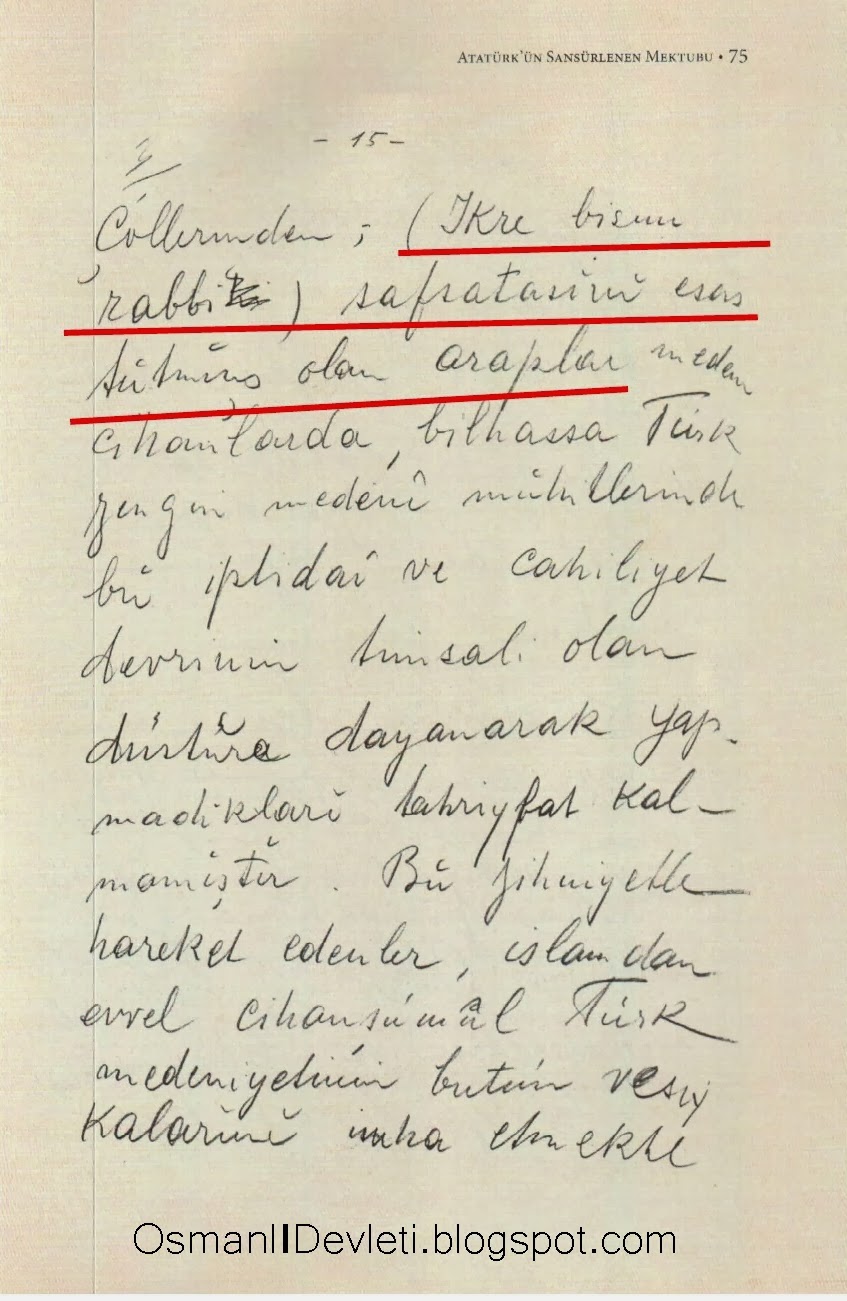 ATATÜRK'ÜN SANSÜRLENEN MEKTUBU • 75
- 15 -
Çöllerinden ; (Ikre bismi
rabbi ) safsatasını esas
tutmuş olan araplar meden
cihanlarda, bilhassa Türk
zengin medenî muhitlerinde
bu iptidaî ve cahiliyet
devrinin timsali olan
düstûra dayanarak yap-
madıkları tahriyfat kal-
mamıştır. Bu zihniyetle
hareket edenler, islamdan
evvel cihanşümûl Türk
medeniyetinin bütün vesiy
kalarını imha etmekte
OsmanlIDevleti.blogspot.com